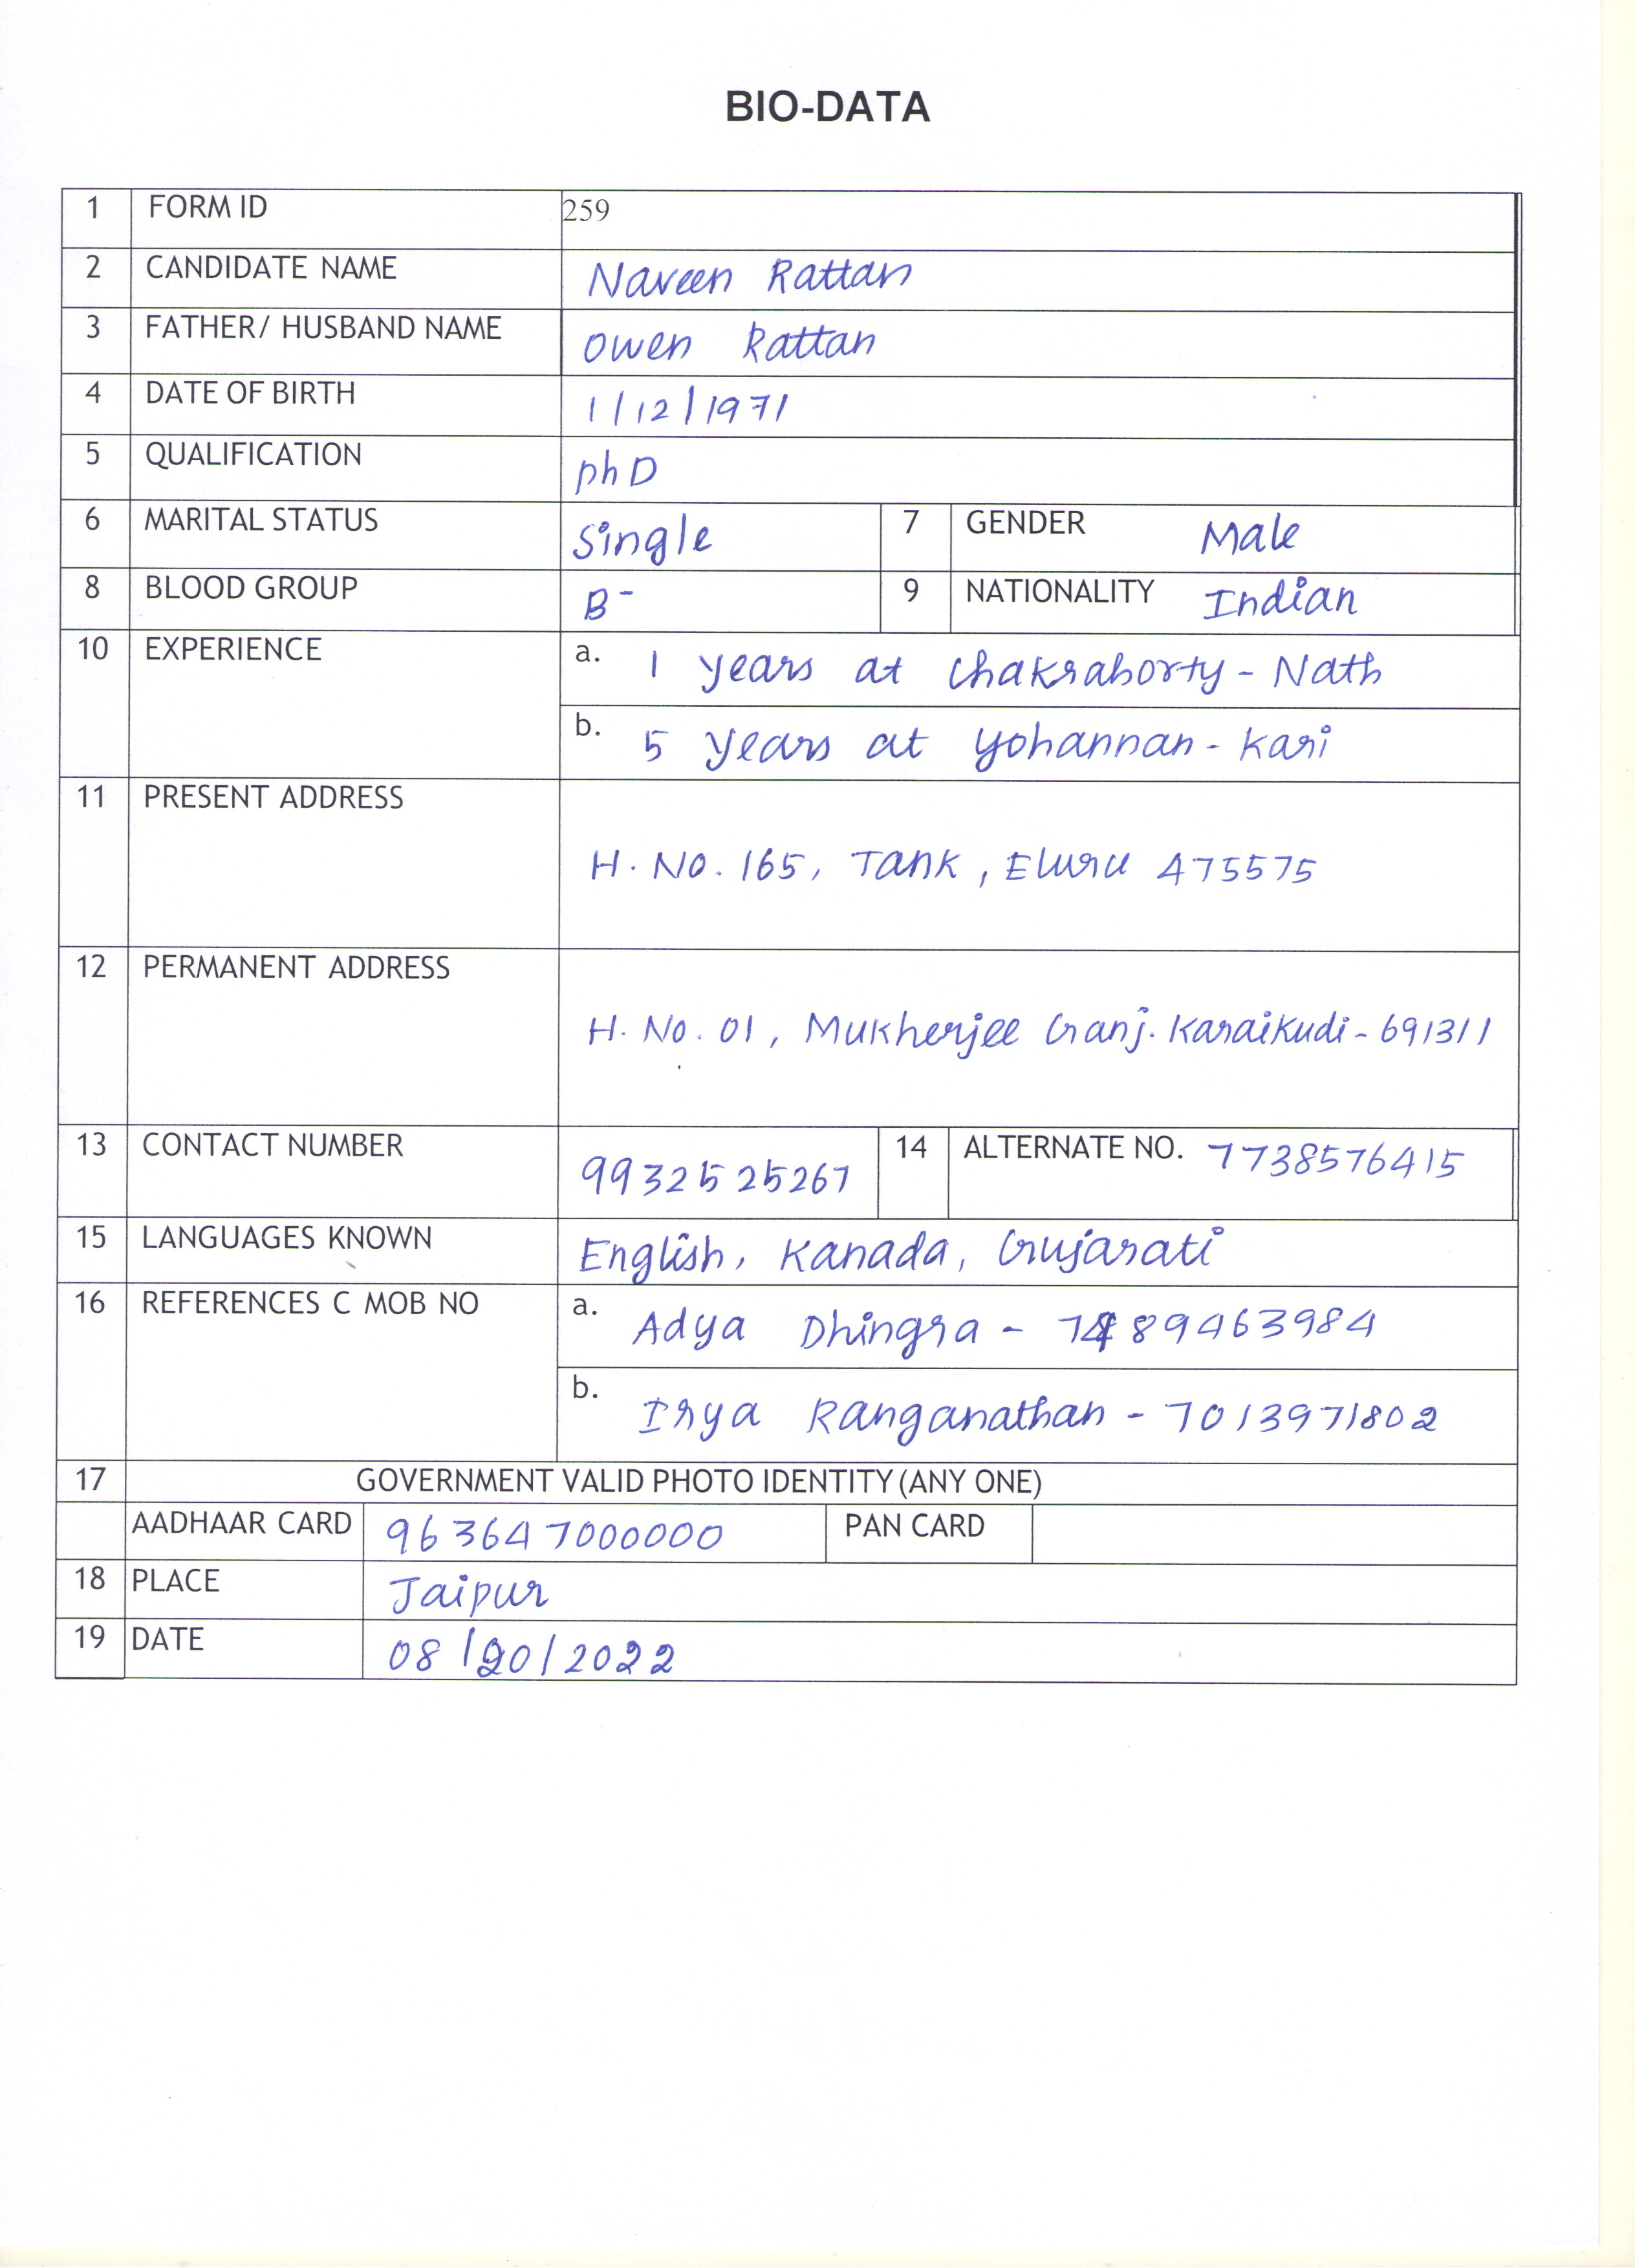 BIO-DATA
1 FORM ID 259
2 CANDIDATE NAME Naveen Rattan
3 FATHER/ HUSBAND NAME Owen Rattan
4 DATE OF BIRTH 1/12/1971
5 QUALIFICATION phD
6 MARITAL STATUS Single 7 GENDER Male
8 BLOOD GROUP B- 9 NATIONALITY Indian
10 EXPERIENCE a. 1 years at Chakraborty - Nath
b. 5 years at Yohannan - Kari
11 PRESENT ADDRESS
H. No. 165, Tank, Eluru 475575
12 PERMANENT ADDRESS
H. No. 01, Mukherjee Ganj. Karaikudi - 691311
13 CONTACT NUMBER 9932525267 14 ALTERNATE NO. 7738576415
15 LANGUAGES KNOWN English, Kanada, Gujarati
16 REFERENCES C MOB NO a. Adya Dhingra - 7489463984
b. Irya Ranganathan - 7013971802
17 GOVERNMENT VALID PHOTO IDENTITY (ANY ONE)
AADHAAR CARD 963647000000 PAN CARD
18 PLACE Jaipur
19 DATE 08/20/2022